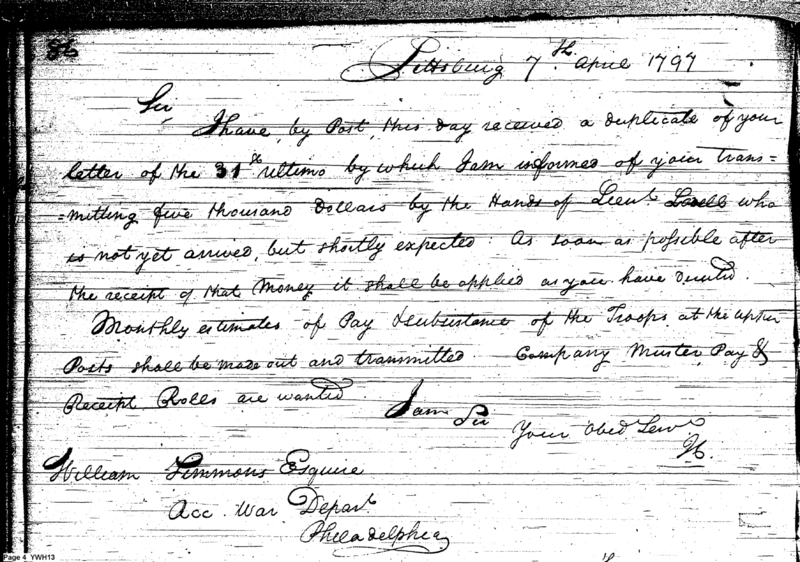 86
Pittsburg 7th. April 1797
Sir
I have, by Post, this day received a duplicate of your
letter of the 31st ultimo by which I am informed of your trans=
=mitting five thousand Dollars by the Hands of Lieut. Lovell who
is not yet arrived, but shortly expected: As soon as possible after
the receipt of that Money it shall be applied as you have directed.
Monthly estimates of Pay & Subsistance of the Troops at the upper
Posts shall be made out and transmitted Company Muster, Pay &
Receipt Rolls are wanted
I am Sir
Your Obed Serv
William Simmons Esquire
Acc. War Depart.
Philadelphia
Page 4 YWH13